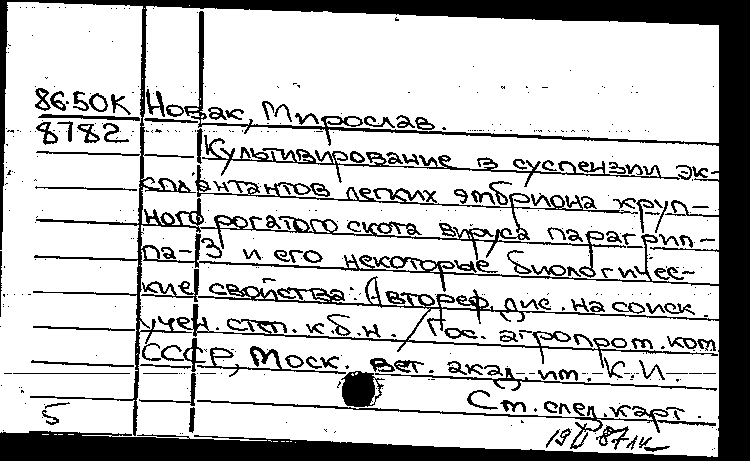 86-50К Новак, Мирослав.
8782
Культивирование в суспензии эк-
сплантантов легких эмбриона круп-
ного рогатого скота вируса парагрип-
па-3 и его некоторые биологичес-
кие свойства: Автореф. дис. на соиск.
учен. степ. к.б.н. / Гос. агропром. ком.
СССР, Моск. вет. акад. им. К.И.
См. след. карт.
5
87